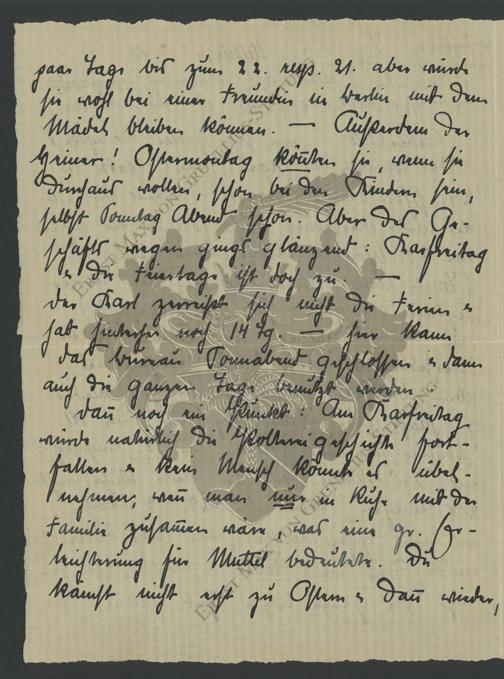 paar Tage bis zum 22. resp. 21. aber würde
sie wohl bei einer Freundin in Berlin mit dem
Mädel bleiben können. — Außerdem der
Heiner! Ostermontag könten sie, wenn sie
durchaus wollen, schon bei den Kindern sein,
selbst Sonntag Abend schon. Aber des Ge-
schäfts wegen gings glänzend: Karfreitag
& die Feiertage ist doch zu —
der Karl zerreißt sich nicht die Ferien &
hat hinterher noch 14 Tg. — hier kann
das Bureau Sonnabend geschlossen & dann
auch die ganzen Tage benützt werden
dan̄ noch ein Punkt: Am Karfreitag
würde natürlich die Poltereigeschichte fort-
fallen & kein Mensch könnte es übel-
nehmen, wen̄ man nur in Ruhe mit der
Familie zusam̄en wäre, was eine gr. Er-
leichterung für Mutti bedeutete. Du
kämst nicht erst zu Ostern & dan̄ wieder,
ERNST MAX VON GRUNELIUS-STIFTUNG
ERNST MAX VON GRUNELIUS-STIFTUNG